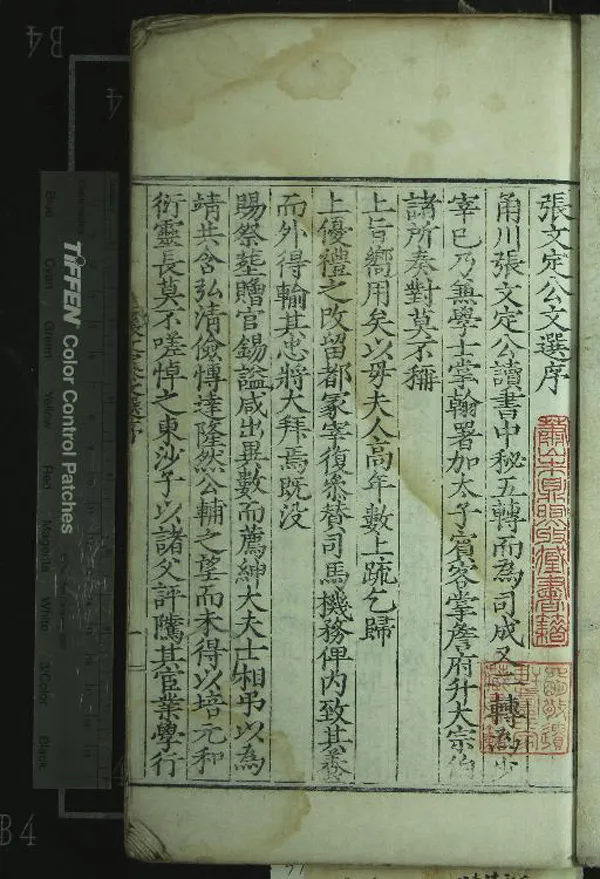 張文定公文選序
甬川張文定公讀書中秘五轉而為司成又三轉為少
宰已乃無學士掌翰署加太子賓客掌詹府升大宗伯
諸所奏對莫不稱
上旨嚮用矣以毋夫人高年數上疏乞歸
上優禮之改留都冢宰復叅賛司馬機務俾内致其養
而外得輸其忠將大拜焉既没
賜祭塟贈官錫謚咸出異數而薦紳大夫士相弔以為
靖共含弘清儉慱達隆然公輔之望而未得以培元和
衍靈長莫不嗟悼之東沙子以諸父評隲其宦業學行
蕭山朱鼎煦収蔵書籍
TIFFEN Color Control Patches
Blue
Cyan
Green
Yellow
Red
Magenta
White
3/Color
Black
B4
4
B4
4